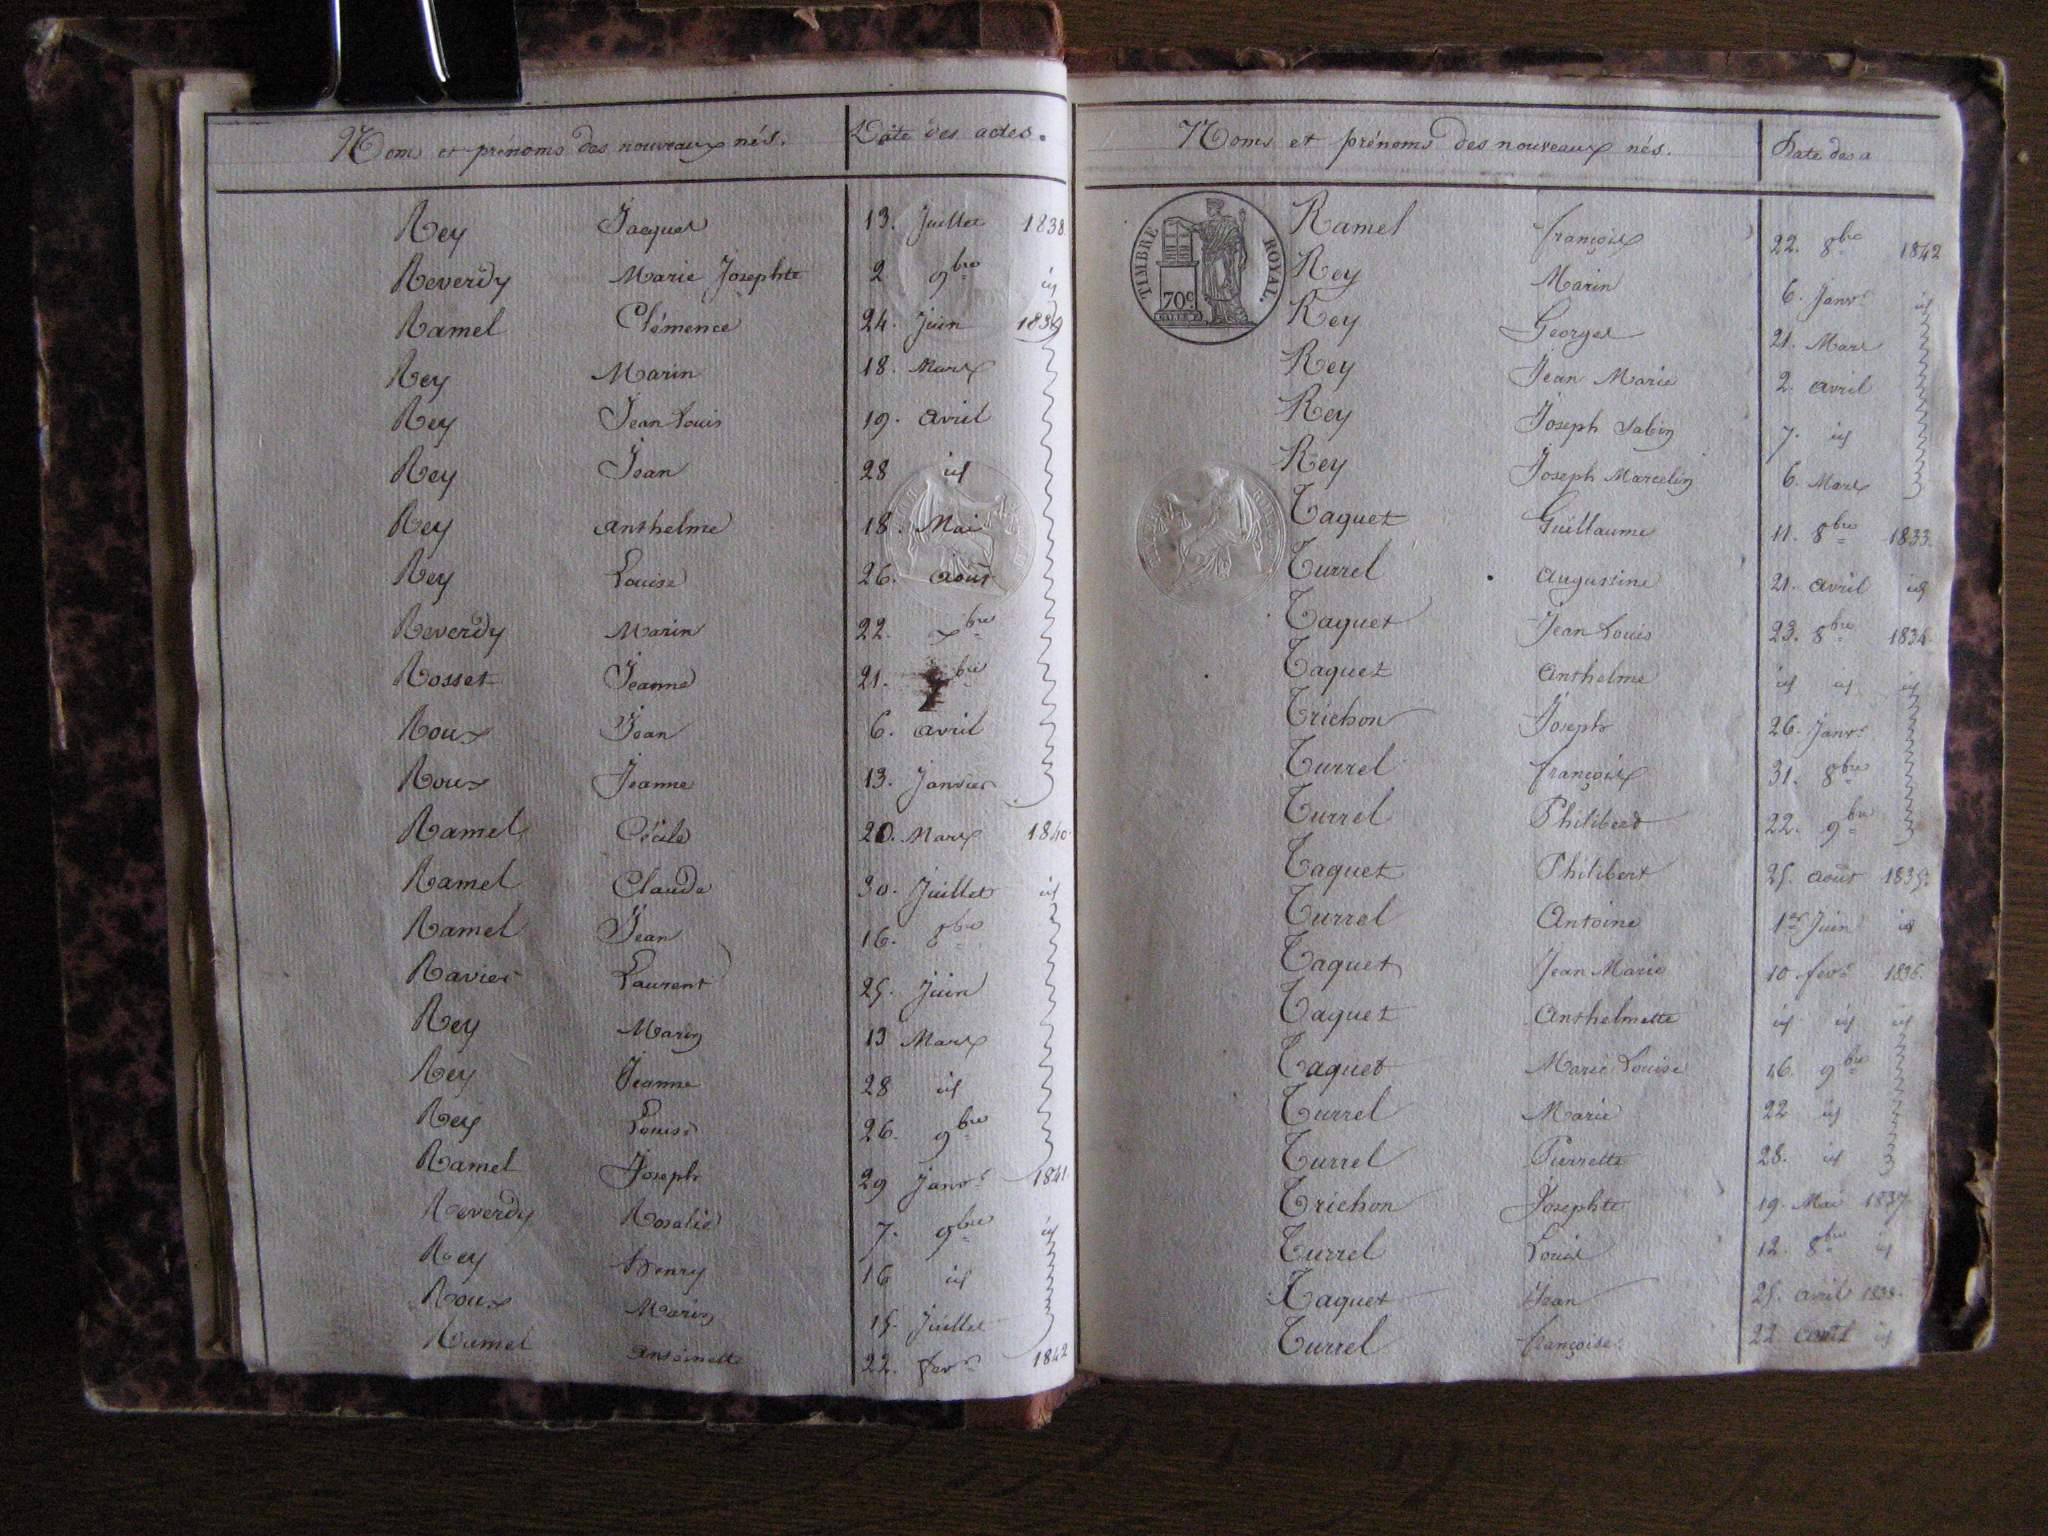 Noms et prénoms des nouveaux nés. Date des actes.
Rey Jacques 13. Juillet 1838
Reverdy Marie Josephte 2 9bre id
Ramel Clémence 24. Juin 1839
Rey Marin 18. Mars
Rey Jean Louis 19. avril
Rey Jean 28 id
Rey anthelme 18. Mai
Rey Louise 26. aout
Reverdy Marin 22. 7bre
Rosset Jeanne 21. bre
Roux Jean 6. avril
Roux Jeanne 13. Janvier
Ramel Cécile 20. Mars 1840
Ramel Claude 30. Juillet id
Ramel Jean 16. 8bre
Ravier Laurent 25. Juin
Rey Marin 13 Mars
Rey Jeanne 28 id
Rey Louise 26. 9bre
Ramel Joseph 29 janvr 1841.
Reverdy Rosalie 7. 9bre id
Rey henry 16 id
Roux Marin 15. Juillet
Ramel antoinette 22. fevr 1842
Noms et prénoms des nouveaux nés. Date des a
TIMBRE ROYAL.
70c
Ramel françois 22. 8bre 1842
Rey Marin 6. Janvr id
Rey Georges 21. Mars
Rey Jean Marie 2. avril
Rey Joseph Sabin 7. id
Rey Joseph Marcelin 6. Mars
Taquet Guillaume 11. 8bre 1833.
Turrel augustine 21. avril id
Taquet Jean Louis 23. 8bre 1834.
Taquet anthelme id id id
Trichon Joseph 26. Janvr
Turrel françois 31. 8bre
Turrel Philibert 22. 9bre
Taquet Philibert 25. aout 1835.
Turrel Antoine 1er Juin id
Taquet Jean Marie 10 fevr 1836.
Taquet anthelmette id id id
Taquet Marie Louise 16. 9bre
Turrel Marie 22 id
Turrel Pierrette 28. id
Trichon Josephte 19. Mai 1837.
Turrel Louis 12. 8bre id
Taquet Jean 25. avril 1838.
Turrel françoise. 22 aout id